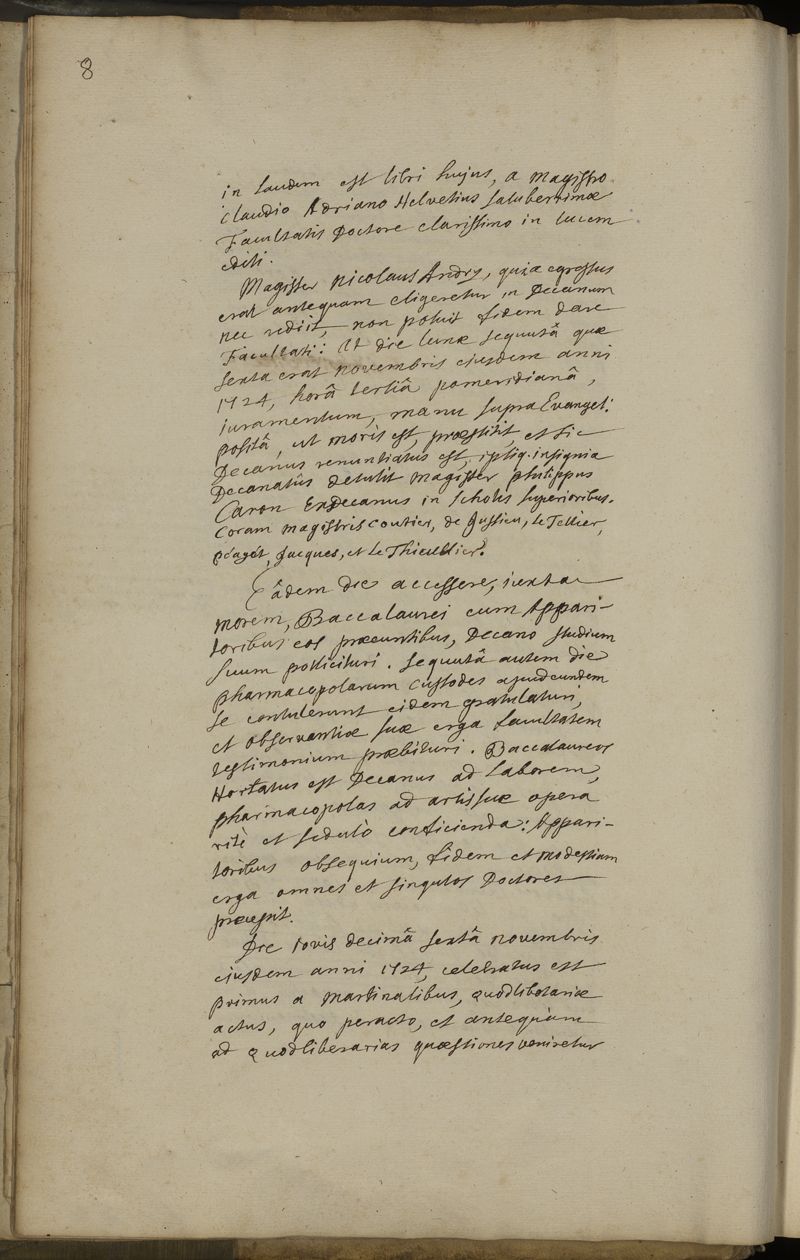 8
in laudem est libri hujus, a Magistro
Claudio Adriano Helvetius saluberrimæ
Facultatis Doctore clarissimo in lucem
editi.
Magister Nicolaus Andry, quia egressus
erat antequam eligeretur in Decanum
nec rediit, non potuit fidem dare
Facultati: At die lunæ sequutâ quæ
sexta erat novembris ejusdem anni
1724, horâ tertiâ pomeridianâ,
iuramentum, manu supra Evangel:
positâ, ut moris est, præstitit, et sic
Decanus renuntiatus est, ipsiq. insignia
Decanatûs detulit Magister philippus
Caron Exdecanus in scholis superioribus.
Coram magistris Coutier, de Jussieu, le Tellier,
péaget, Jacques, et le Thieullier.
Eâdem die accessere, iuxta
morem, Baccalaurei cum Appari-
toribus eos præeuntibus, Decano studium
suum pollicituri. Sequutâ autem die
pharmacopolarum Custodes apud eundem
se contulerunt eidem gratulaturi,
et observantiæ suæ erga facultatem
testimonium præbituri. Baccalaureos
Hortatus est Decanus ad laborem,
pharmacopolas ad artis suæ opera
ritè et sedulò conficienda: Appari-
toribus obsequium, fidem et modestiam
erga omnes et singulos Doctores
præcepit.
Die Iovis decimâ sextâ novembris
ejusdem anni 1724, celebratus est
primus a Martinalibus, quodlibetariæ
actus, quo peracto, et antequàm
ad quodlibetarias quæstiones veniretur